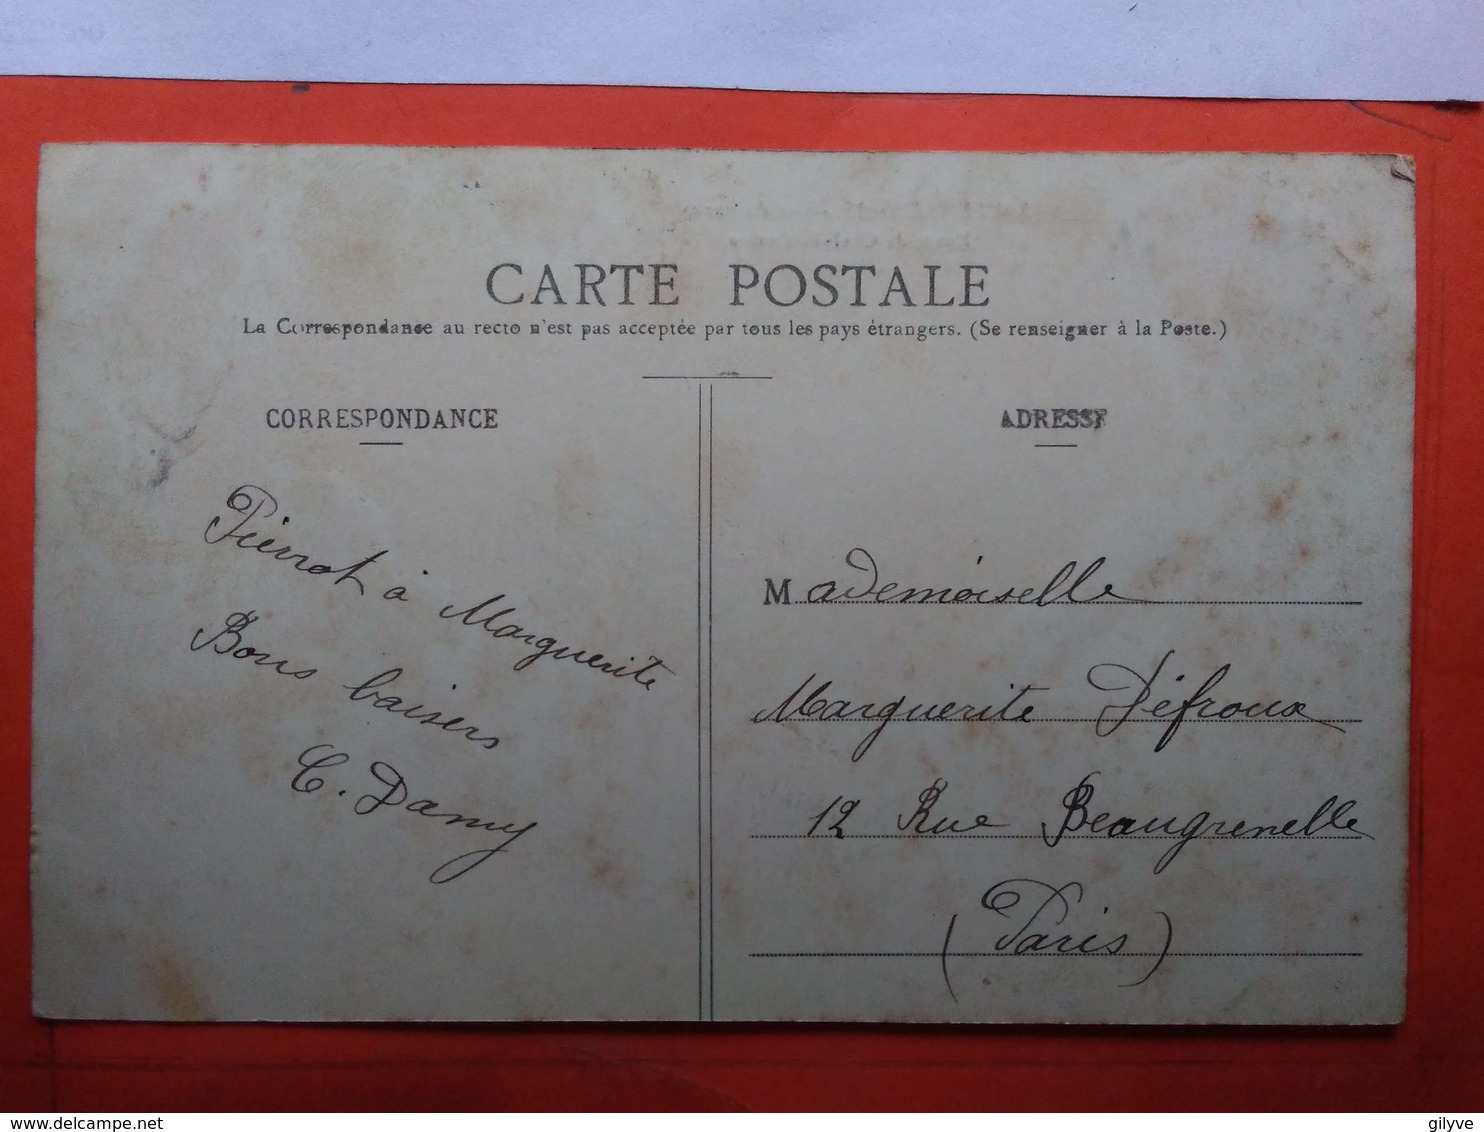 CARTE POSTALE
La Correspondance au recto n'est pas acceptée par tous les pays étrangers. (Se renseigner à la Poste.)
CORRESPONDANCE
Pierrot à Marguerite
Bons baisers
C. Damy
ADRESSE
Mademoiselle
Marguerite Défroux
12 Rue Beaugrenelle
(Paris)
delcampe.net
gilyve